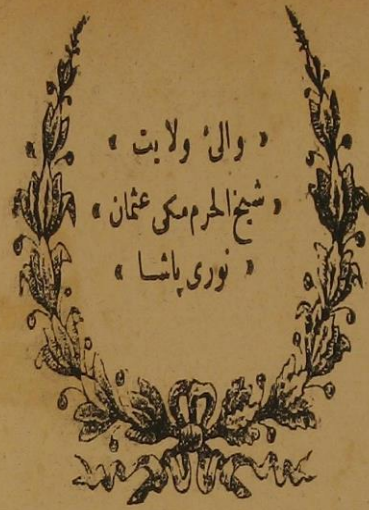 « والئ ولايت »
« شيخ الحرم مكى عثمان »
« نورى پاشا »